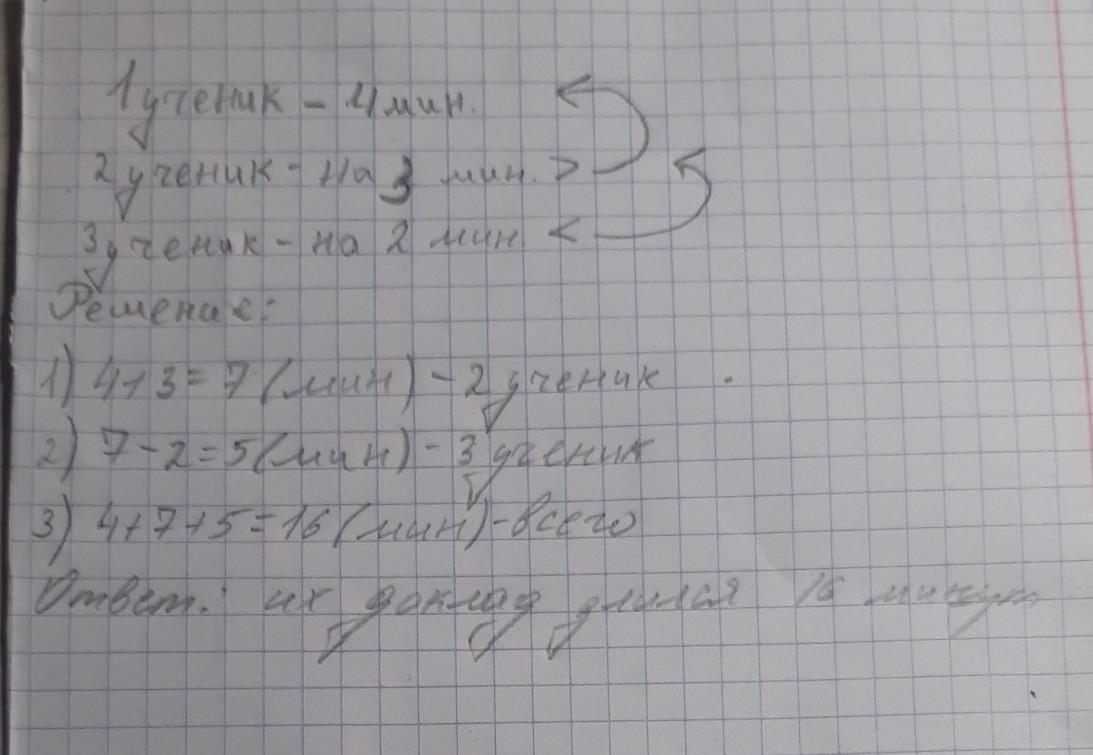 1 ученик - 4 мин.
2 ученик - на 3 мин. >
3 ученик - на 2 мин <
Решение:
1) 4+3=7 (мин) - 2 ученик
2) 7-2=5 (мин) - 3 ученик
3) 4+7+5=16 (мин) - всего
Ответ: их доклад длился 16 минут